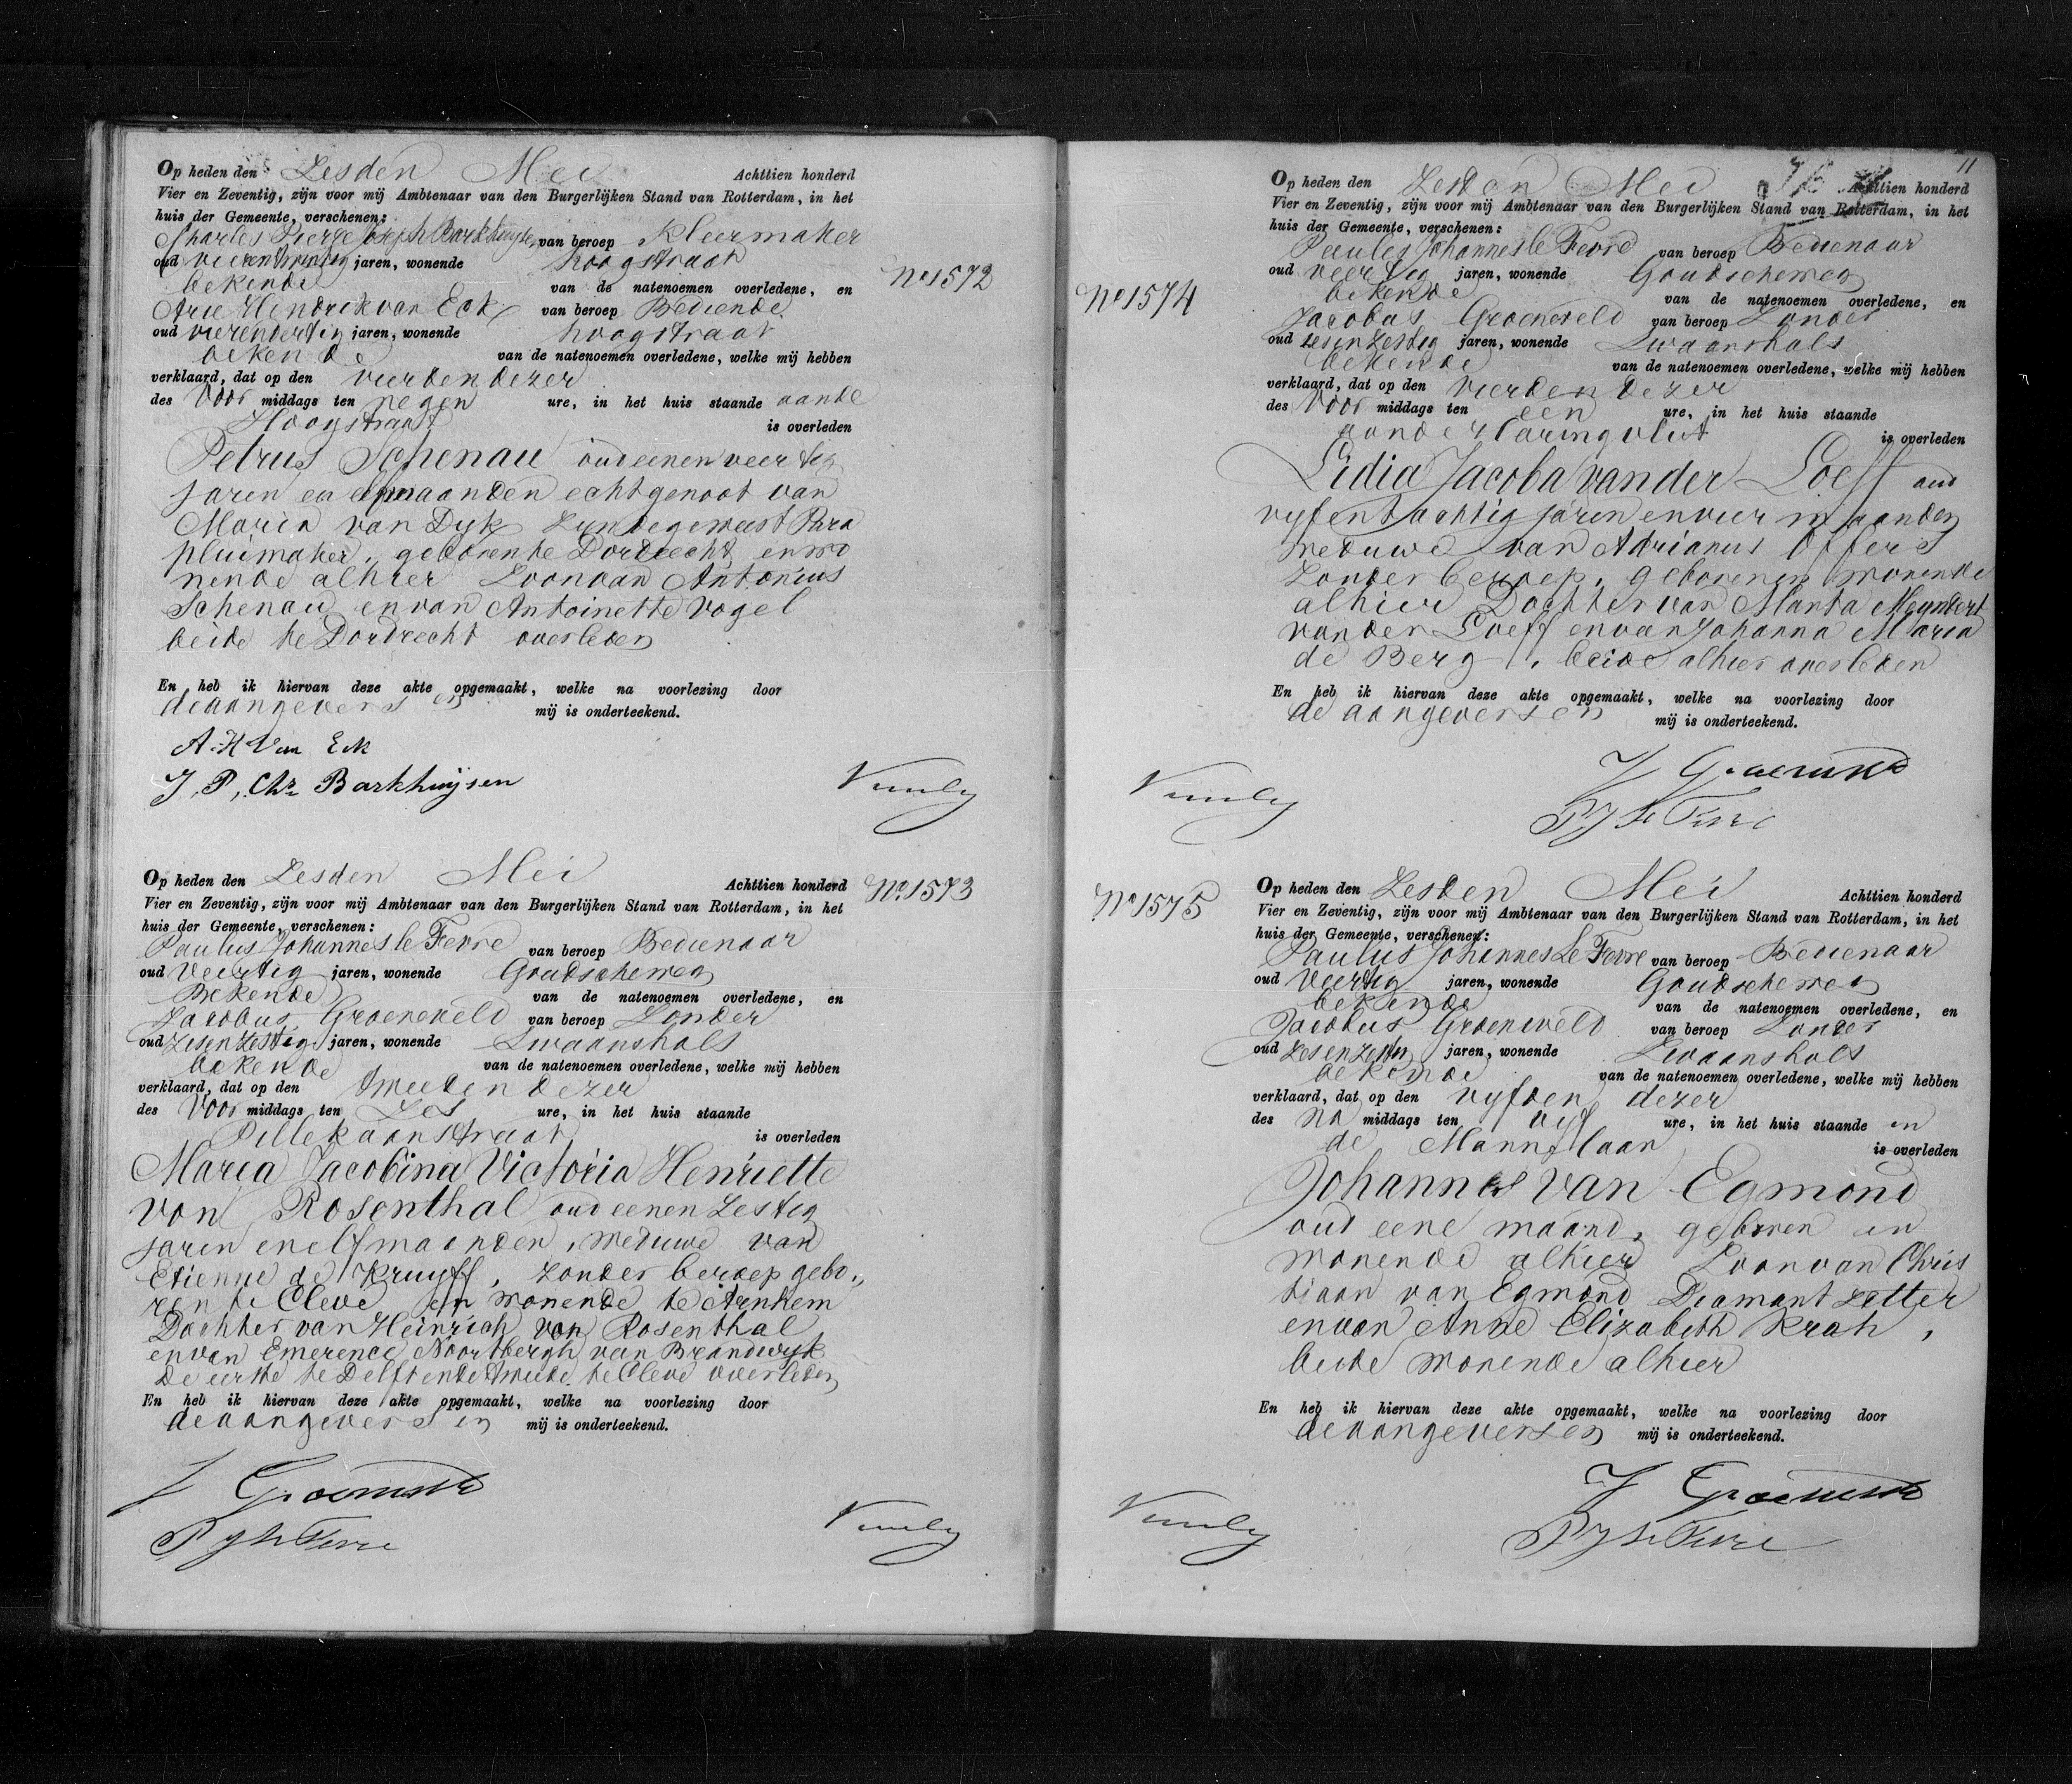 Op heden den Zesden Mei Achttien honderd
Vier en Zeventig, zijn voor mij Ambtenaar van den Burgerlijken Stand van Rotterdam, in het
huis der Gemeente, verschenen:
Charles Pierre Joseph Barkhuysen van beroep Kleermaker
oud vierentwintig jaren, wonende hoogstraat
bekende van de natenoemen overledene, en
Arie Hendrik van Eck van beroep Bediende
oud vierendertig jaren, wonende hoogstraat
bekende van de natenoemen overledene, welke mij hebben
verklaard, dat op den vierden dezer
des Voor middags ten negen ure, in het huis staande aande
Hoogstraat is overleden
Petrus Schenau oud eenenveertig
jaren en maanden echtgenoot van
Maria van Dyk Zynde geweest Para
pluimaker, geboren te Dordrecht en wo
nende alhier Zoon van Antonius
Schenau en van Antoinette Vogel
beide te Dordrecht overleden
En heb ik hiervan deze akte opgemaakt, welke na voorlezing door
de aangevers en mij is onderteekend.
A. H Van Eck
J, P, Chr Barkhuijsen
No 1572
Op heden den Zesden Mei Achttien honderd
Vier en Zeventig, zijn voor mij Ambtenaar van den Burgerlijken Stand van Rotterdam, in het
huis der Gemeente, verschenen:
Paulus Johannes le Fevre van beroep Bedienaar
oud Veertig jaren, wonende Goudscheweg
Bekende van de natenoemen overledene, en
Jacobus Groeneveld van beroep Zonder
oud Zesenzestig jaren, wonende Zwaanshals
bekende van de natenoemen overledene, welke mij hebben
verklaard, dat op den tweeden dezer
des Voor middags ten Zes ure, in het huis staande
Pellekaanstraat is overleden
Maria Jacobina Victoria Henriette
von Rosenthal oud eenenzestig
jaren en elf maanden, weduwe van
Etienne de Kruyff, zonder beroep gebo„
ren te Cleve en wonende te Arnhem
Dochter van Heinrich von Rosenthal
en van Emerence Noortbergh van Brandwyk
De eerste te Delft en de tweede te Cleve overleden
En heb ik hiervan deze akte opgemaakt, welke na voorlezing door
de aangevers en mij is onderteekend.
J Groeneveld
P J le Fevre
No 1573
11
Op heden den Zesden Mei Achttien honderd
Vier en Zeventig, zijn voor mij Ambtenaar van den Burgerlijken Stand van Rotterdam, in het
huis der Gemeente, verschenen:
Paulus Johannes le Fevre van beroep Bedienaar
oud veertig jaren, wonende Goudscheweg
bekende van de natenoemen overledene, en
Jacobus Groeneveld van beroep Zonder
oud zesenzestig jaren, wonende Zwaanshals
bekende van de natenoemen overledene, welke mij hebben
verklaard, dat op den Vierden dezer
des Voor middags ten een ure, in het huis staande
aan de Haringvliet is overleden
Lidia Jacoba van der Loeff oud
vyfentachtig jaren en vier maanden
weduwe van Adrianus Offers
Zonder beroep, geboren en wonende
alhier Dochter van Manta Meyndert
van der Loeff en van Johanna Maria
de Berg, beide alhier overleden
En heb ik hiervan deze akte opgemaakt, welke na voorlezing door
de aangevers en mij is onderteekend.
J Groeneveld
P J le Fevre
No 1574
Op heden den Zesden Mei Achttien honderd
Vier en Zeventig, zijn voor mij Ambtenaar van den Burgerlijken Stand van Rotterdam, in het
huis der Gemeente, verschenen:
Paulus Johannes Le Fevre van beroep Bedienaar
oud Veertig jaren, wonende Goudscheweg
bekende van de natenoemen overledene, en
Jacobus Groeneveld van beroep Zonder
oud Zesenzestig jaren, wonende Zwaanshals
bekende van de natenoemen overledene, welke mij hebben
verklaard, dat op den vyfden dezer
des na middags ten vyf ure, in het huis staande in
de Mannslaan is overleden
Johannes van Egmond
oud eene maand, geboren en
wonende alhier Zoon van Chris
tiaan van Egmond Diamantzetter
en van Anna Elizabeth Krah,
beide wonende alhier
En heb ik hiervan deze akte opgemaakt, welke na voorlezing door
de aangevers en mij is onderteekend.
J Groeneveld
P J le Fevre
No 1575